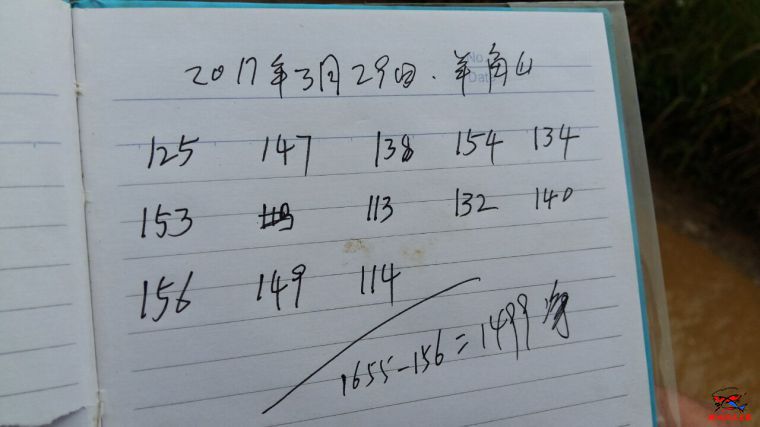 No.
2017年3月29日.羊角山
125 147 138 154 134
153 113 132 140
156 149 114
1655-156=1499